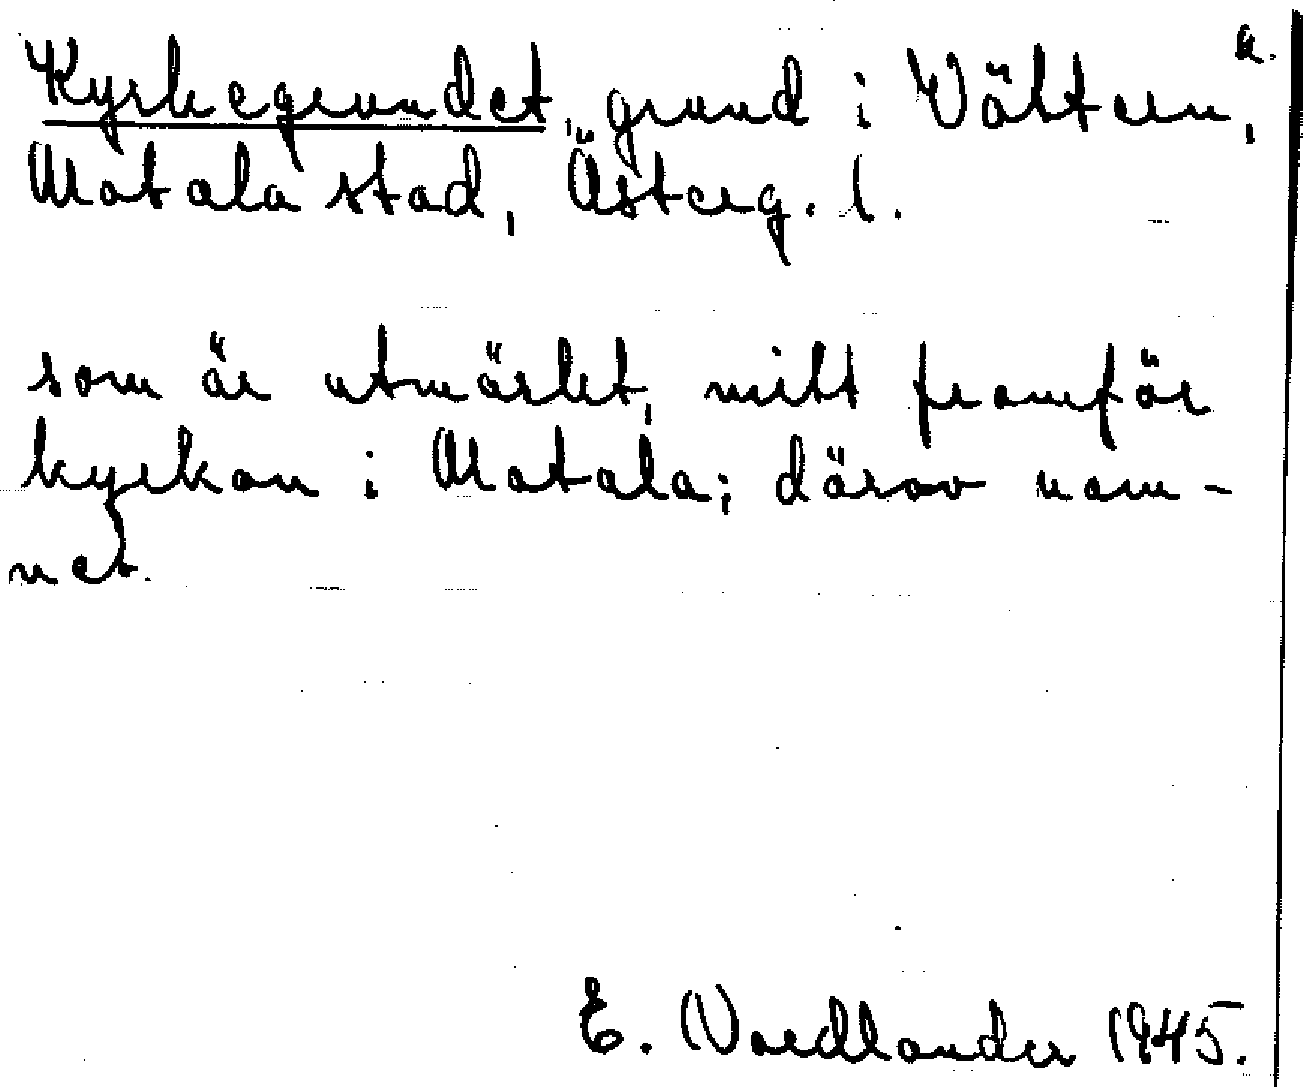 a.
Kyrkegrundet, grund i Vättern,
Motala stad, Österg. l.
som är utmärkt, mitt framför
kyrkan i Motala; därav nam-
net.
E. Nordlander 1945.